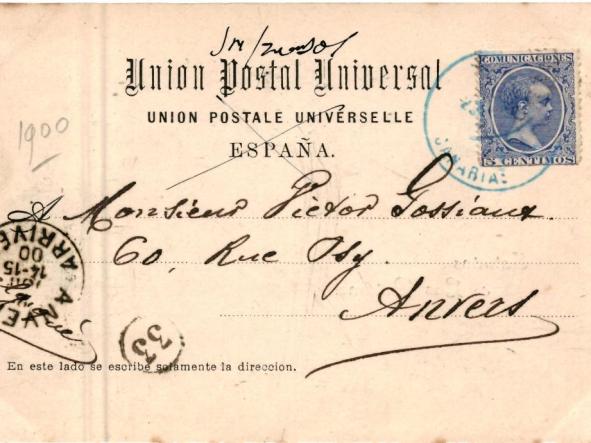 Union Postal Universal
COMUNICACIONES
UNION POSTALE UNIVERSELLE
ESPAÑA.
5 CENTIMOS
CANARIAS
1900
A Monsieur Victor Gossiaux.
60, Rue Osy.
Anvers
ARRIVÉE
00
14-15
33
En este lado se escribe solamente la direccion.